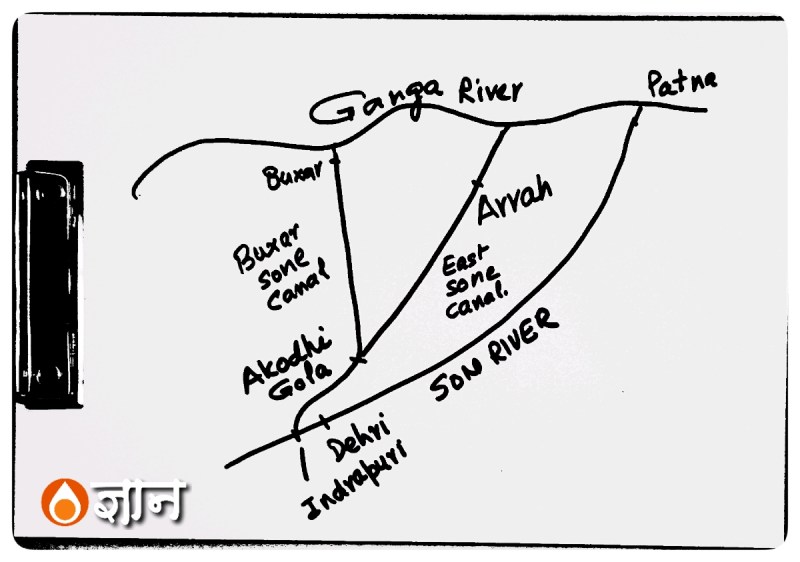 Ganga River
Patna
Buxar
Arrah
Buxar
sone
canal
East
sone
canal.
Akodhi
Gola
SON RIVER
Dehri
Indrapuri
ज्ञान